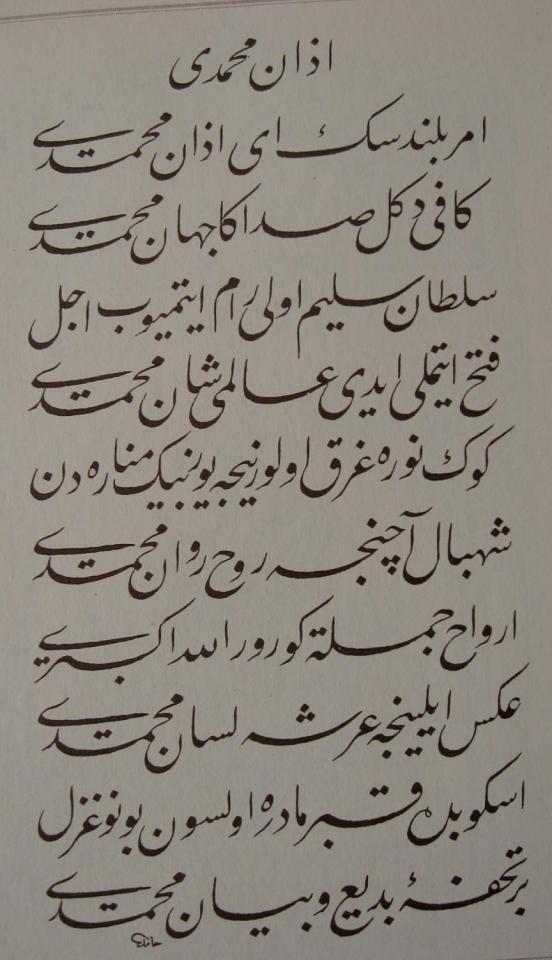 اذان محمدی
امر بلندسك ای اذان محمدی
كافی دكل صداكا جهان محمدی
سلطان سلیم اولی رام ایتمیوب اجل
فتح ایتملی ایدی عالمی شان محمدی
كوك نوره غرق اولور نیجه یوز بیك مناره دن
شهبال آچنجه روح روان محمدی
ارواح جملة كورور الله اكبری
عكس ایلینجه عرشه لسان محمدی
اسكوبده قبر مادره اولسون بو نو غزل
بر تحفۀ بدیع و بیان محمدی